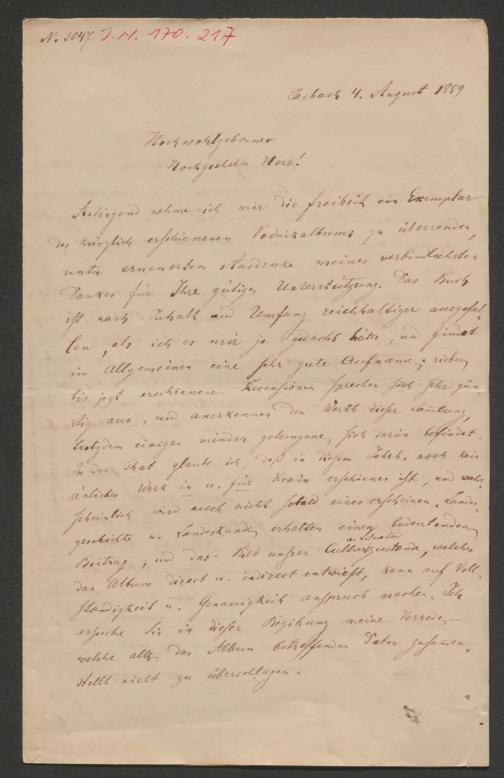 N. 3047 I.N. 170.217
Laibach 4. August 1859
Hochwohlgeborner
Hochgeehrter Herr!
Anliegend nehme ich mir die Freiheit ein Exemplar
des kürzlich erschienenen Vodnikalbums zu übersenden,
unter erneuertem Ausdrucke meines verbindlichsten
Dankes für Ihre gütige Unterstützung. Das Buch
ist nach Inhalt und Umfang reichhaltiger ausgefal-
len, als ich es mir je gedacht hätte, und findet
im Allgemeinen eine sehr gute Aufname; sieben
bis jezt erschienene Recensionen sprechen sich sehr gün-
stig aus, und anerkennen den Werth dieser Samlung,
trotzdem einiges minder gelungene sich darin befindet.
In der That glaube ich, daß in diesem Jahrh. noch kein
änliches Werk in u. für Krain erschienen ist, und wahr-
scheinlich wird auch nicht sobald eines erscheinen. Landes-
geschichte u. Landeskunde erhalten einen bedeutenden
Beitrag; und das Bild unsrer Cultur u. Literaturzustände, welches
das Album direct u. indirect entwirft, kann auf Voll-
ständigkeit u. Genauigkeit anspruch machen. Ich
ersuche Sie in dieser Beziehung meine Vorrede,
welche alle das Album betreffenden Daten zusamen-
stellt nicht zu überschlagen.